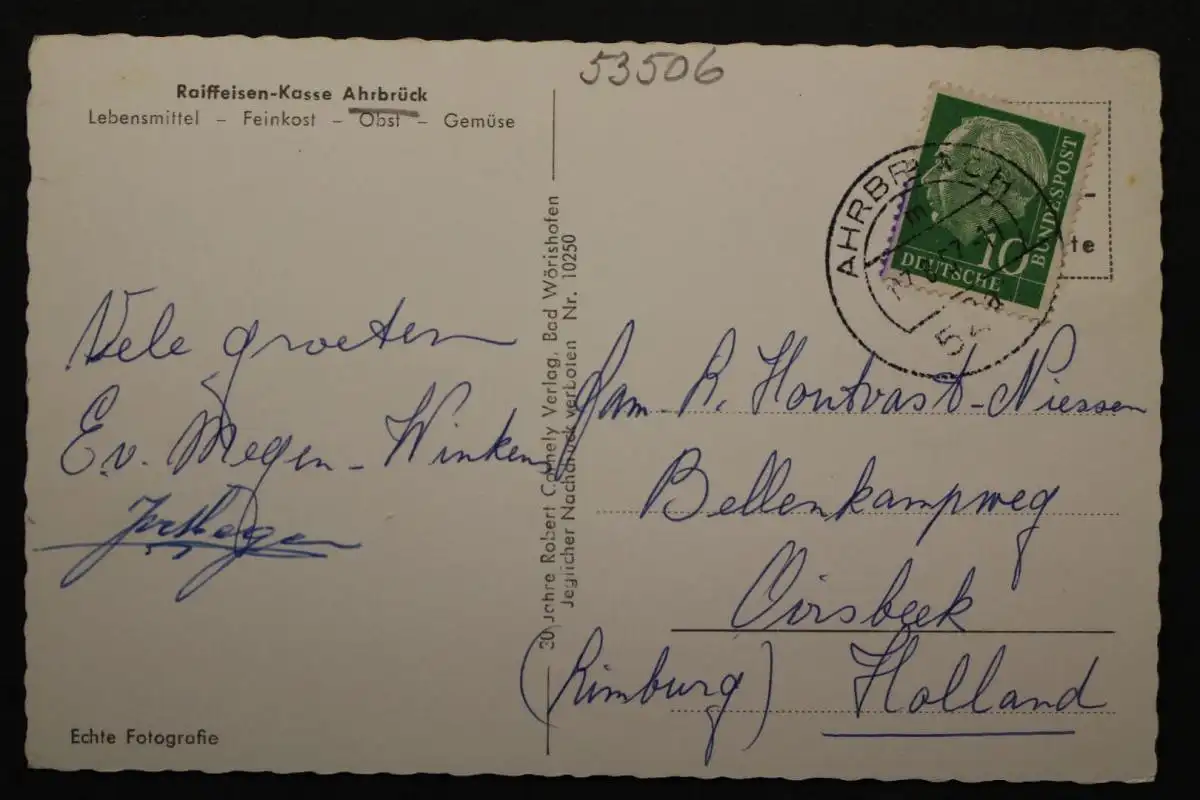 53506
Raiffeisen-Kasse Ahrbrück
Lebensmittel – Feinkost – Obst – Gemüse
Vele groeten
E.v. Megen-Winkens
Echte Fotografie
30 Jahre Robert Cormely Verlag, Bad Wörishofen
Jeglicher Nachdruck verboten Nr. 10250
AHRBRÜCK
10
DEUTSCHE
BUNDESPOST
te
Fam. R. Houtvast-Niessen
Bellenkampweg
Oirsbeek
(Limburg) Holland